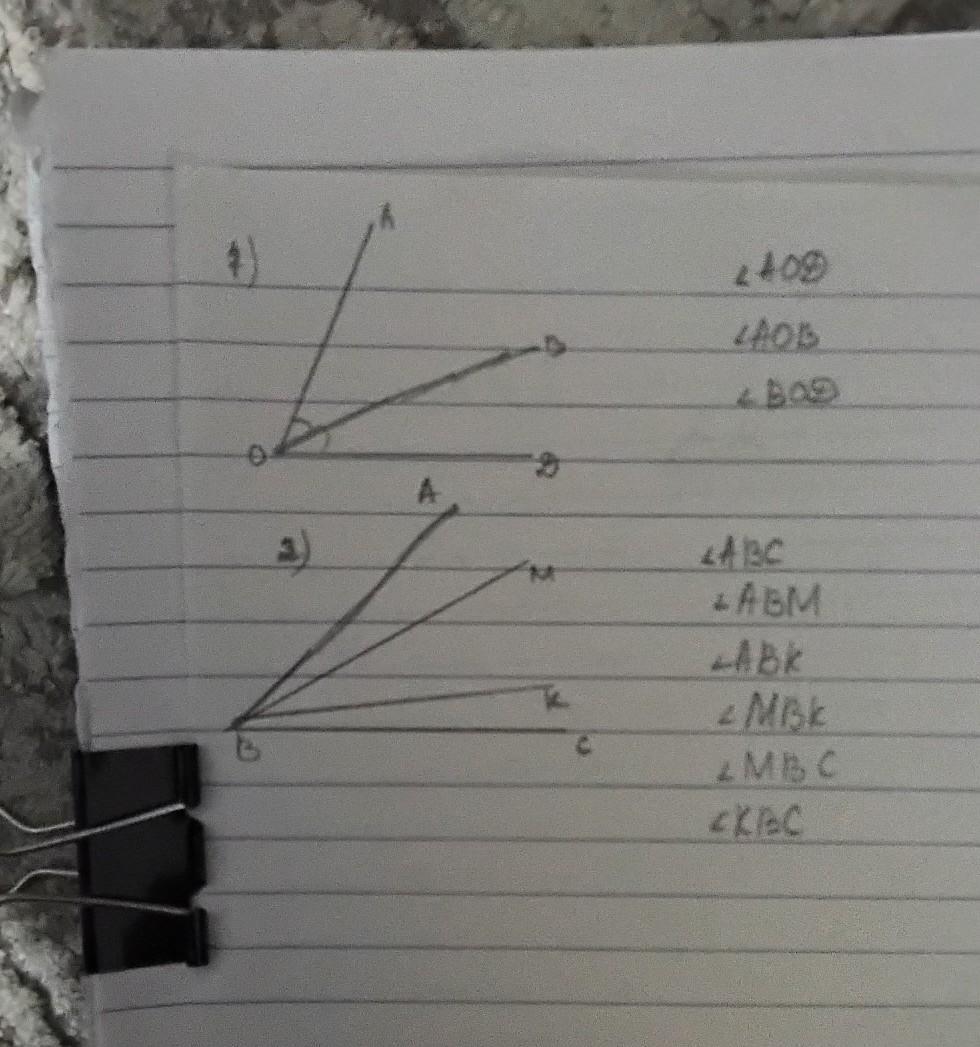 1)
A
B
O
D
∠AOD
∠AOB
∠BOD
2)
A
M
K
B
C
∠ABC
∠ABM
∠ABK
∠MBK
∠MBC
∠KBC